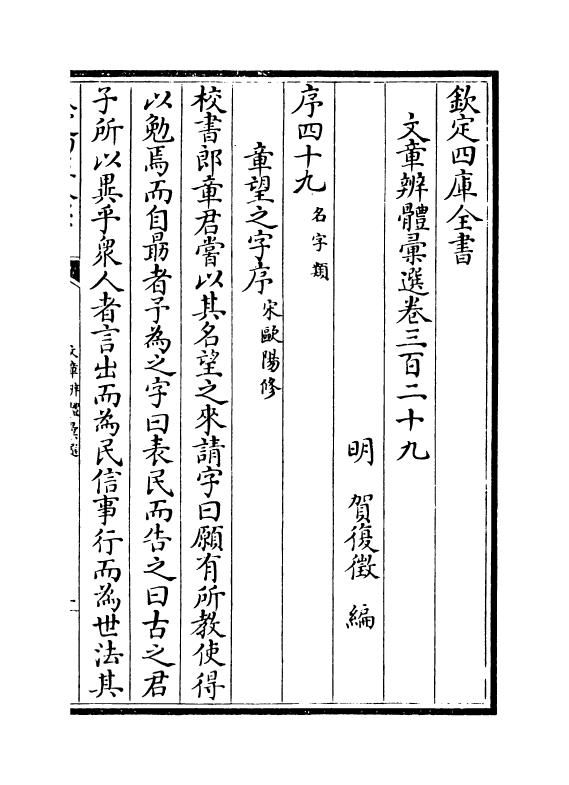 欽定四庫全書
文章辨體彙選卷三百二十九
明　賀復徵　編
序四十九 名字類
章望之字序 宋歐陽修
校書郎章君嘗以其名望之來請字曰願有所教使得
以勉焉而自朂者予為之字曰表民而告之曰古之君
子所以異乎衆人者言出而為民信事行而為世法其